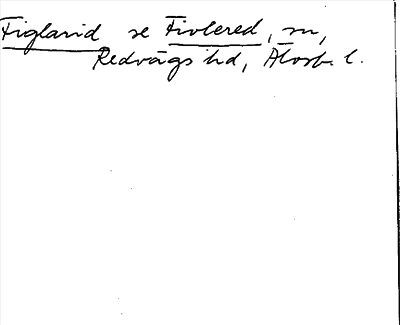 Figlarid se Fivlered, sn,
Redvägs hd, Älvsb. l.